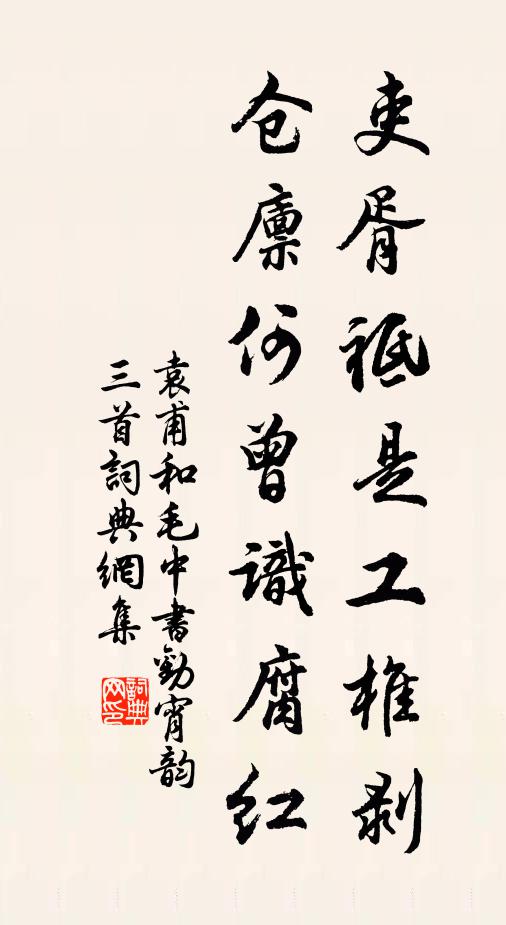 吏胥祗是工椎剥
仓廪何曾識腐红
袁甫和毛中書勸宵韵
三首詞典網集
詞典网印